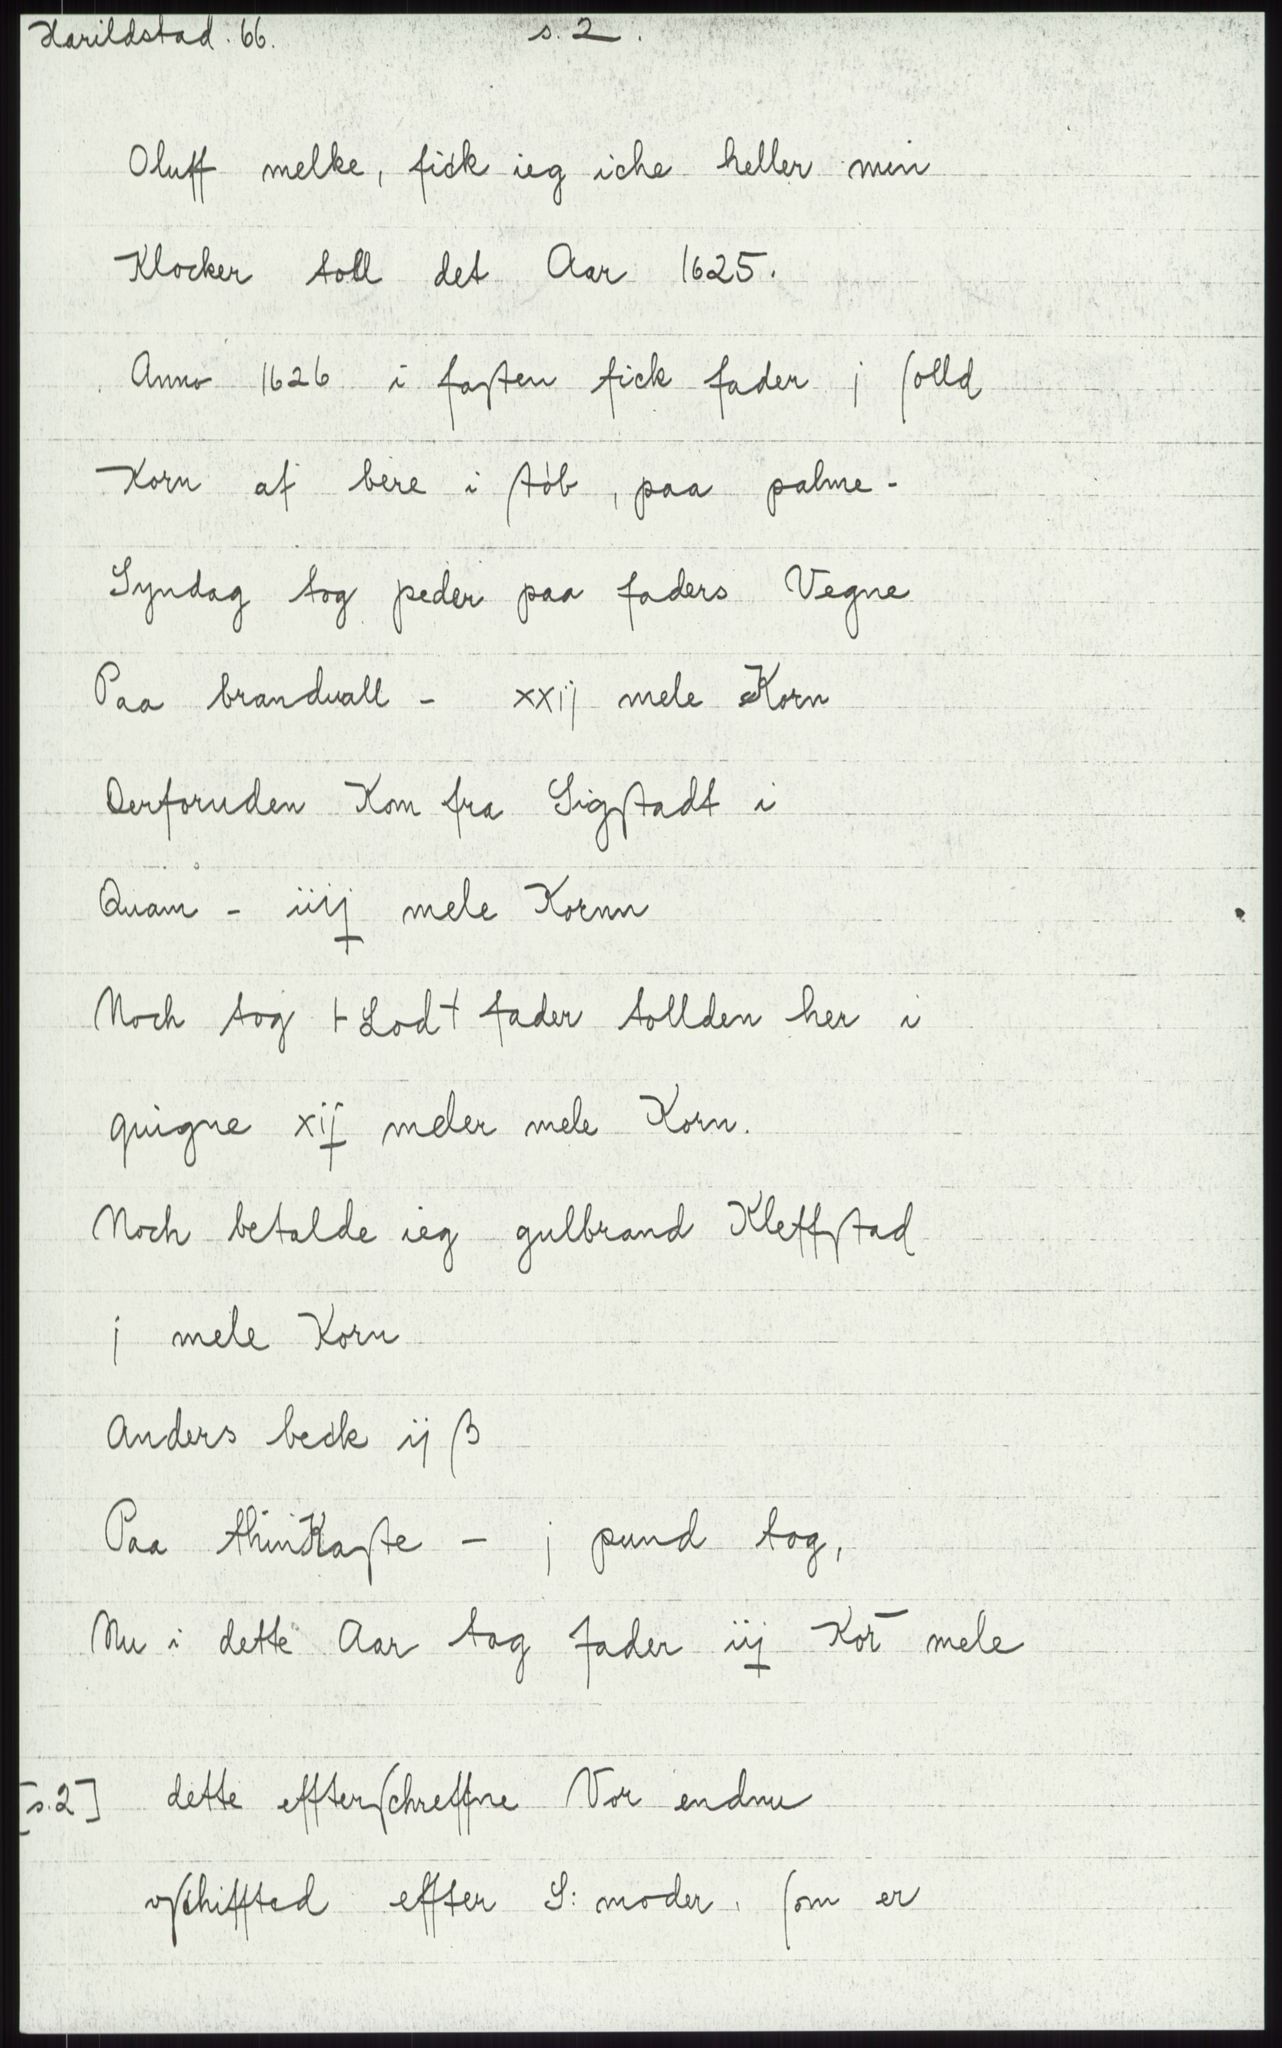 Harildstad. 66. s. 2.
Oluff melke, fick ieg iche heller min
Klocker toll det Aar 1625.
Anno 1626 i fasten fick fader j solld
Korn af bere i støb, paa palme-
Syndag tog peder paa faders Vegne
Paa brandvall - xxij mele Korn
Derforuden Kom fra Sigstadt i
Quam - iiij mele Kornn
Noch tog + Lod + fader tollden her i
quigne xij meler mele Korn.
Noch betalde ieg gulbrand Kleffstad
j mele Korn
Anders beck ij ß
Paa thinKaste - j pund tog,
Nu i dette Aar tog fader iij Kor̄ mele
[s.2] dette effterschreffne Vor endnu
vschiffted effter S: moder, som er